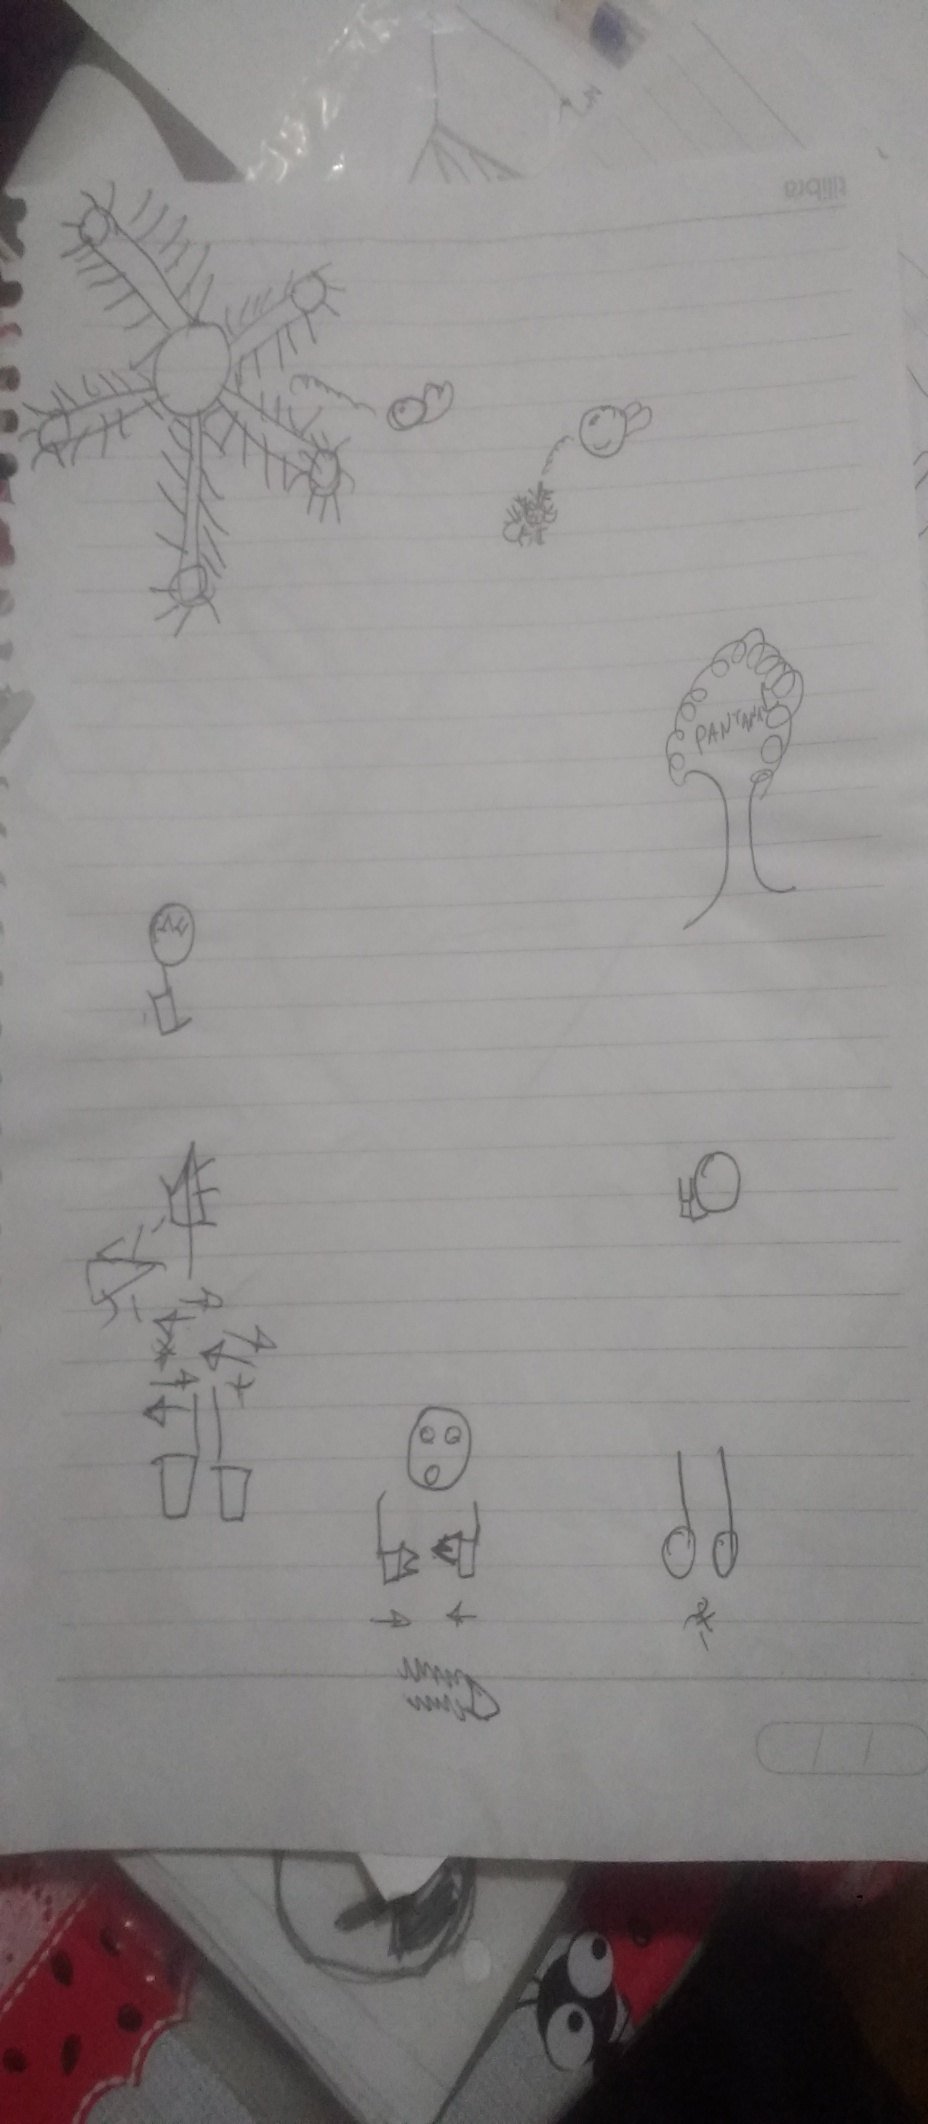 tilibra
PANTANO